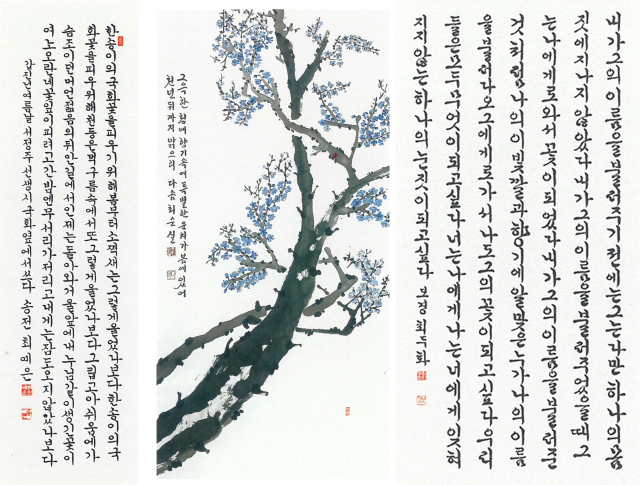 한송이의국화꽃을피우기위해봄부터소쩍새는그렇게울었나보다한송이의국
화꽃을피우기위해천둥은먹구름속에서또그렇게울었나보다그립고아쉬움에가
슴조이던머언젊음의뒤안길에서인제는돌아와거울앞에선내누님같이생긴꽃이
여노오란네꽃잎이피려고간밤엔무서리가저리고내게는잠도오지않았나보다
갑진년여름날 서정주 선생 시 국화옆에서 쓰다 송전
그윽한 청매 향기 속에 특별한 운치가 봄에 있어
천년 뒤까지 맑으리 다솜 최순실
내가그의이름을불러주기전에는그는다만하나의몸
짓에지나지않았다내가그의이름을불러주었을때그
는나에게로와서꽃이되었다내가그의이름을불러준
것처럼나의이빛깔과향기에알맞은누가나의이름
을불러다오그에게로가서나도그의꽃이되고싶다우리
들은모두무엇이되고싶다너는나에게나는너에게잊혀
지지않는하나의눈짓이되고싶다 보경 최득화